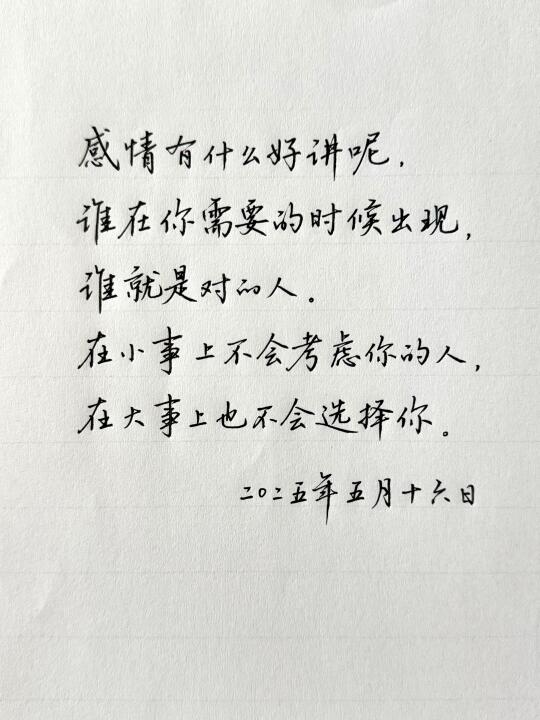 感情有什么好讲呢，
谁在你需要的时候出现，
谁就是对的人。
在小事上不会考虑你的人，
在大事上也不会选择你。
二〇二五年五月十六日